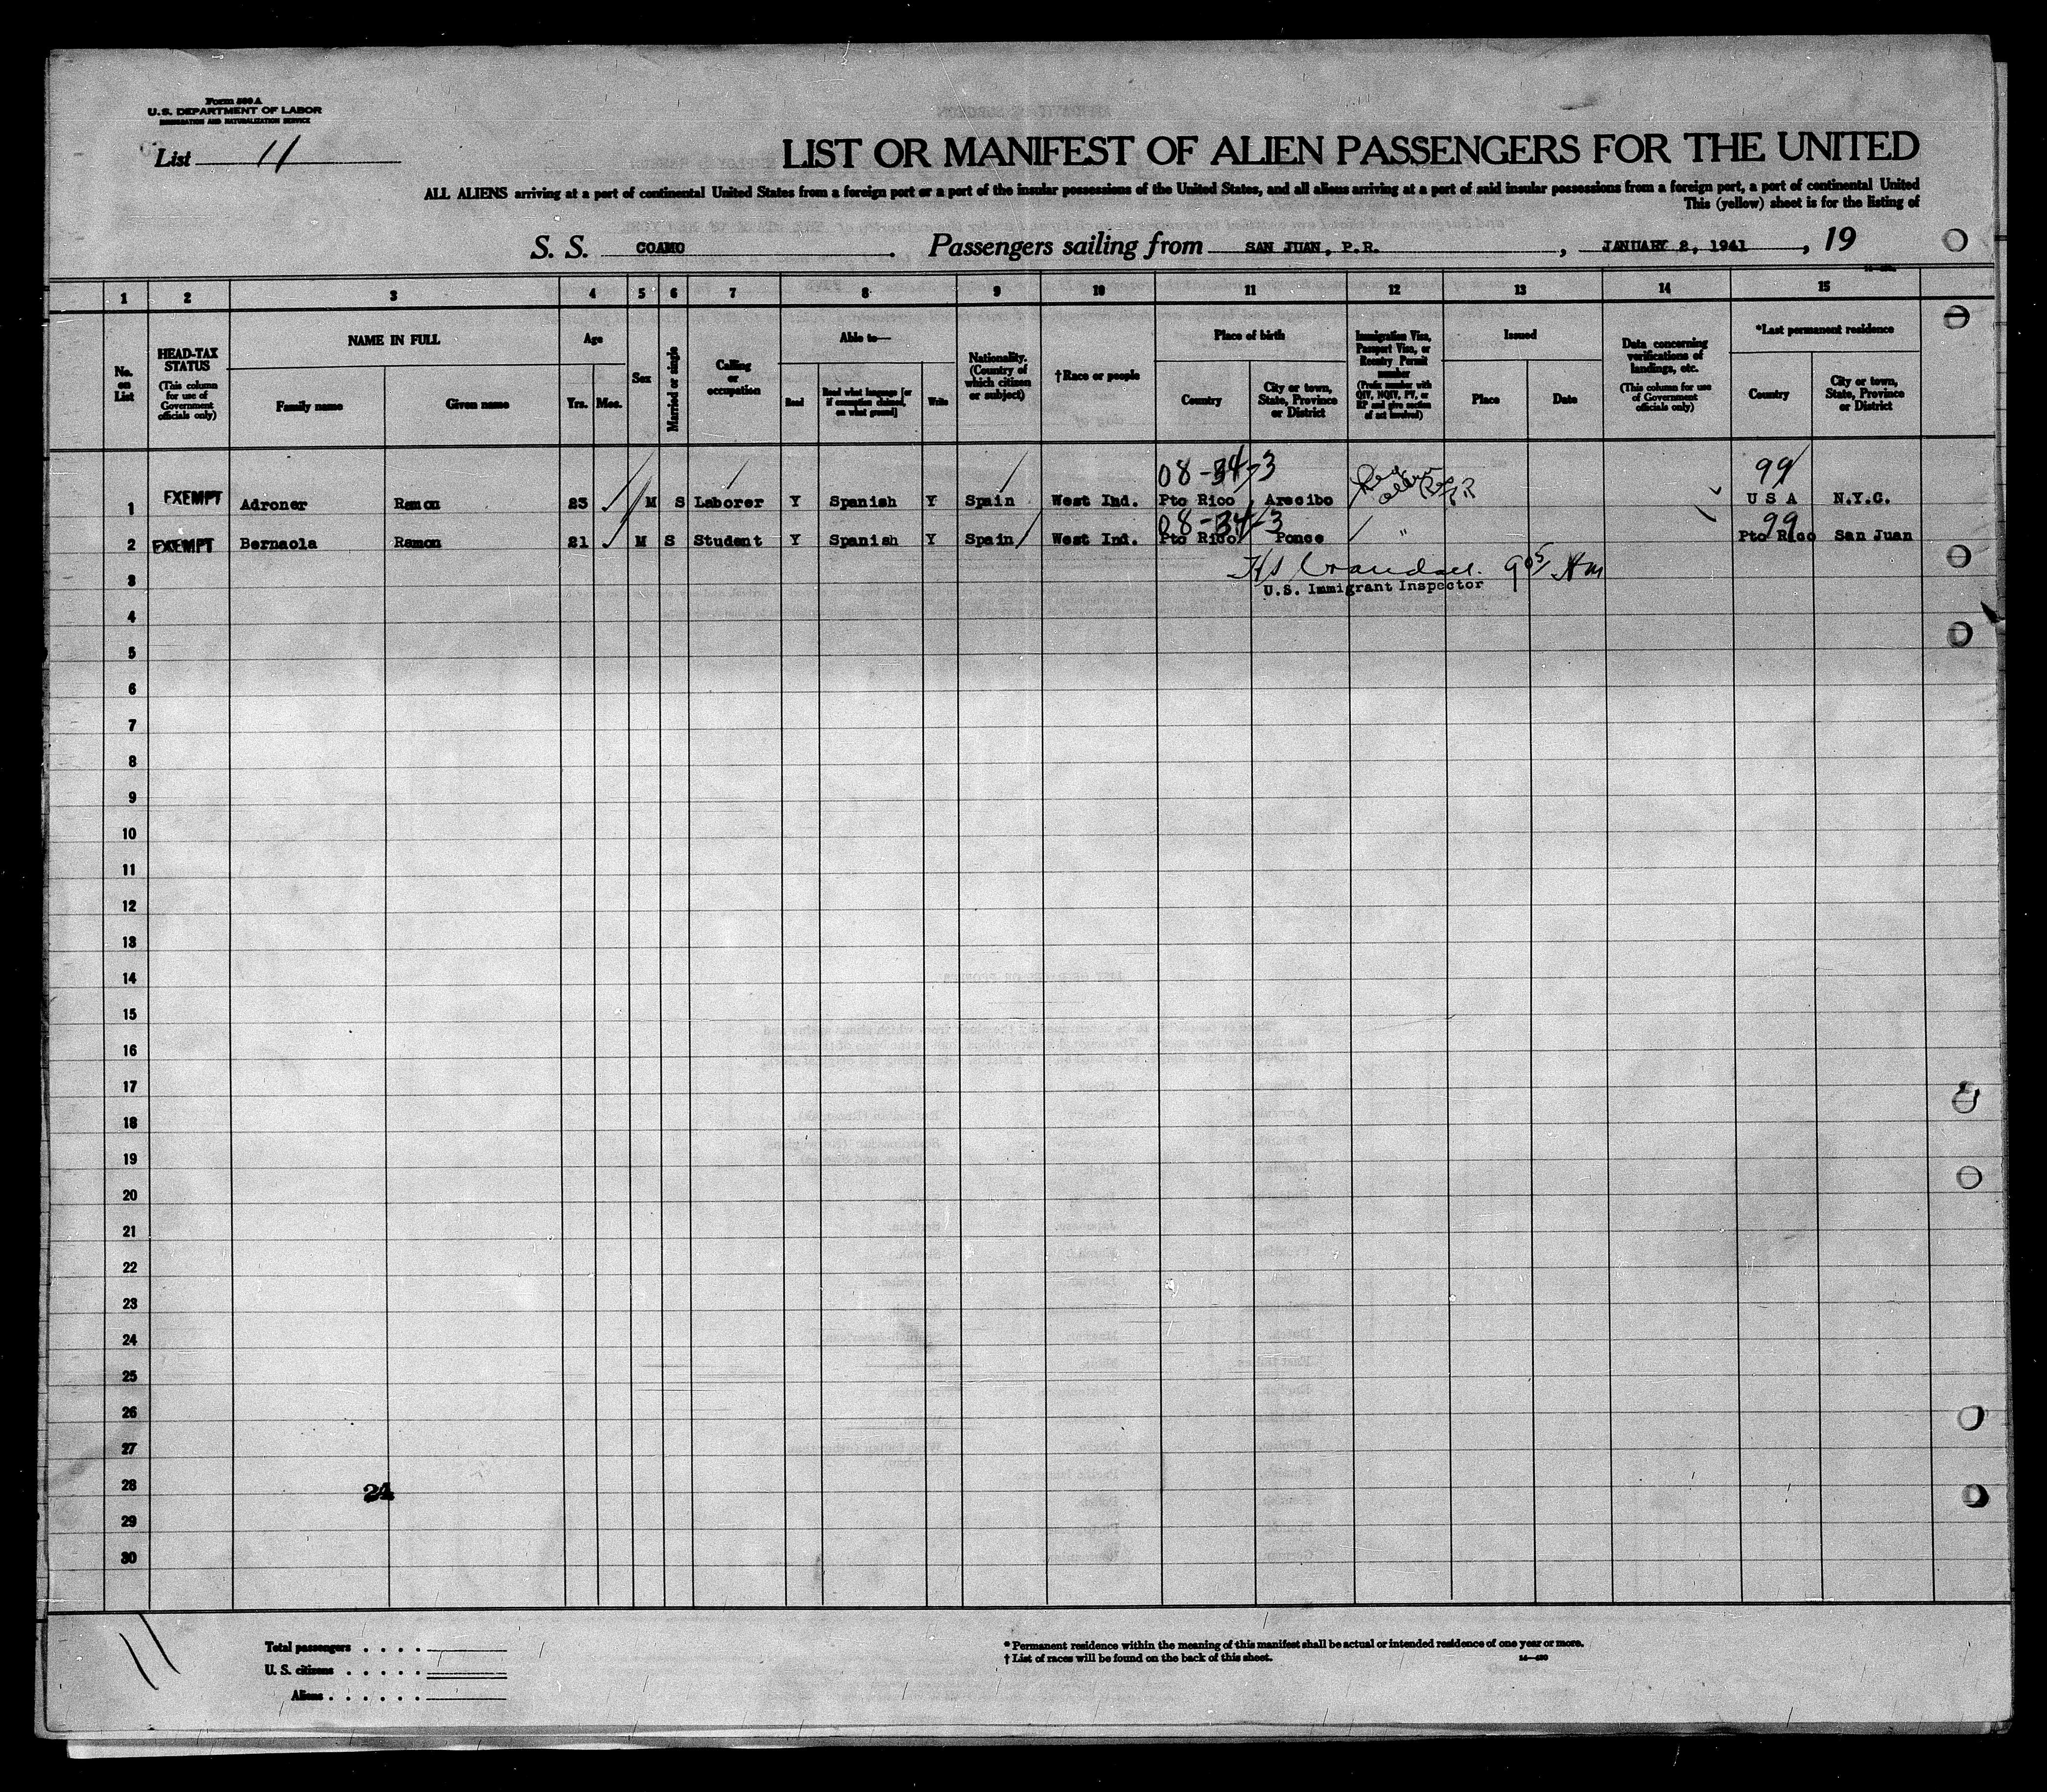 Form 500 A
U.S. DEPARTMENT OF LABOR
IMMIGRATION AND NATURALIZATION SERVICE
List 11
LIST OR MANIFEST OF ALIEN PASSENGERS FOR THE UNITED
ALL ALIENS arriving at a port of continental United States from a foreign port or a port of the insular possessions of the United States, and all aliens arriving at a port of said insular possessions from a foreign port, a port of continental United
This (yellow) sheet is for the listing of
S. S. COAMO . Passengers sailing from SAN JUAN, P.R. , JANUARY 2, 1941 , 19
1 2 3 4 5 6 7 8 9 10 11 12 13 14 15
No. on List
HEAD-TAX STATUS (This column for use of Government officials only)
NAME IN FULL
Family name Given name
Age
Yrs. Mos.
Sex
Married or single
Calling or occupation
Able to—
Read Read what language [or if exemption claimed, on what ground] Write
Nationality. (Country of which citizen or subject)
† Race or people
Place of birth
Country City or town, State, Province or District
Immigration Visa, Passport Visa, or Reentry Permit number (Prefix number with QIV, NQIV, PV, or RP and give section of act involved)
Issued
Place Date
Data concerning verifications of landings, etc. (This column for use of Government officials only)
*Last permanent residence
Country City or town, State, Province or District
08-34-3 99
1 EXEMPT Adroner Ramon 23 M S Laborer Y Spanish Y Spain West Ind. Pto Rico Arecibo U S A N.Y.C.
08-34-3 99
2 EXEMPT Bernaola Ramon 21 M S Student Y Spanish Y Spain West Ind. Pto Rico Ponce " Pto Rico San Juan
905 Am
U.S. Immigrant Inspector
3
4
5
6
7
8
9
10
11
12
13
14
15
16
17
18
19
20
21
22
23
24
25
26
27
28
24
29
30
11
Total passengers . . . .
U. S. citizens . . . . .
Aliens . . . . . .
* Permanent residence within the meaning of this manifest shall be actual or intended residence of one year or more.
† List of races will be found on the back of this sheet.